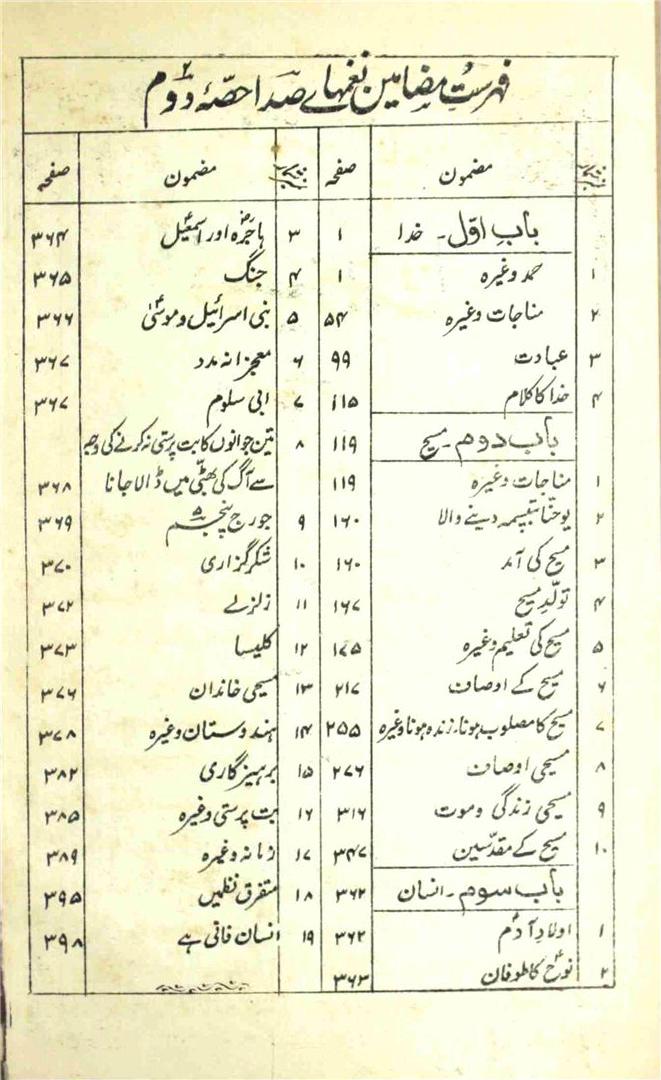 فہرستِ مضامین نغمہائے صدا حصّۂ دوم ۲
نمبر مضمون صفحہ
بابِ اوّل۔ خدا ۱
۱ حمد وغیرہ ۱
۲ مناجات وغیرہ ۵۴
۳ عبادت ۹۹
۴ خدا کا کلام ۱۱۵
باب دوم۔ مسیح ۱۱۹
۱ مناجات وغیرہ ۱۱۹
۲ یوحنّا بتپسمہ دینے والا ۱۶۰
۳ مسیح کی آمد ۱۶۰
۴ تولّدِ مسیح ۱۶۷
۵ مسیح کی تعلیم وغیرہ ۱۷۵
۶ مسیح کے اوصاف ۲۱۷
۷ مسیح کا مصلوب ہونا۔ زندہ ہونا وغیرہ ۲۵۵
۸ مسیحی اوصاف ۲۷۶
۹ مسیحی زندگی و موت ۳۱۶
۱۰ مسیح کے مقدّسین ۳۴۷
باب سوم۔ انسان ۳۶۲
۱ اولادِ آدمؑ ۳۶۲
۲ نوحؑ کا طوفان ۳۶۳
نمبر مضمون صفحہ
۳ ہاجرہؓ اور اسمٰعیلؑ ۳۶۴
۴ جنگ ۳۶۵
۵ بنی اسرائیل و موسیٰؑ ۳۶۶
۶ معجزانہ مدد ۳۶۷
۷ ابی سلوم ۳۶۷
۸ تین جوانوں کا بت پرستی نہ کرنے کی وجہ
سے آگ کی بھٹّی میں ڈالا جانا ۳۶۸
۹ جورج پنجم ۵ ۳۶۹
۱۰ شکرگزاری ۳۷۰
۱۱ زلزلے ۳۷۲
۱۲ کلیسا ۳۷۳
۱۳ مسیحی خاندان ۳۷۶
۱۴ ہندوستان وغیرہ ۳۷۸
۱۵ پرہیزگاری ۳۸۲
۱۶ بت پرستی وغیرہ ۳۸۵
۱۷ زمانہ وغیرہ ۳۸۹
۱۸ متفرق نظمیں ۳۹۵
۱۹ انسان فانی ہے ۳۹۸